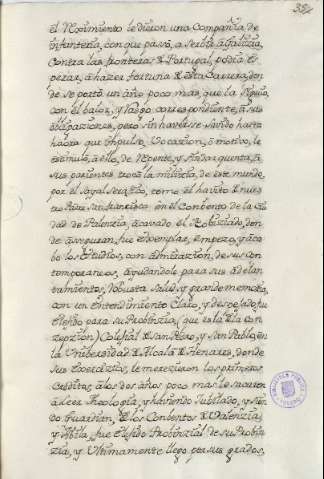 351
el Regimiento le dieron una Compañia de
infanteria, con que passó, a servir, a Galicia,
contra las fronteras de Portugal, podia es-
perar, a hazer fortuna de esta Carrera, don
de se portó un año poco mas, que la siguio,
con el balor, y Garvo correspondiente, a sus
obligaziones, pero sin haverse savido hasta
haora que impulso, Ocazion, o motivo, le
estimuló, a ello, de Repente, y sin dar quenta, a
sus parientes, trocó la milizia, de este mundo,
por el sayal Serafico, tomó el havito de nues-
tro Padre San francisco en el Conbento de la Ciu
dad de Palenzia, acavado el Nobiziado, don
de aseguran, fue exemplar, empezó, y aca
bo los estudios, con admirazion, de sus con
temporaneos, ayudandole para sus adelan
tamientos, Robusta Salud, y grande memoria,
con un entendimiento Claro, y despejado, fue
electo para su Probinzia (que es la de la Con
zepzion) Colegial de San Pedro, y San Pablo, en
la Universidad de Alcala de Henares, donde
sus exerzizios, le merezieron los primeros
Creditos, a los dos años poco mas le sacaron
a leer theologia, y haviendo Jubilado, y sien
do Guardian, de los Conbentos de Palenzia,
y Abila, fue electo Probinzial de su Probin
zia, y Ultimamente llego por sus grados,
BIBLIOTECA PUBLICA
TOLEDO